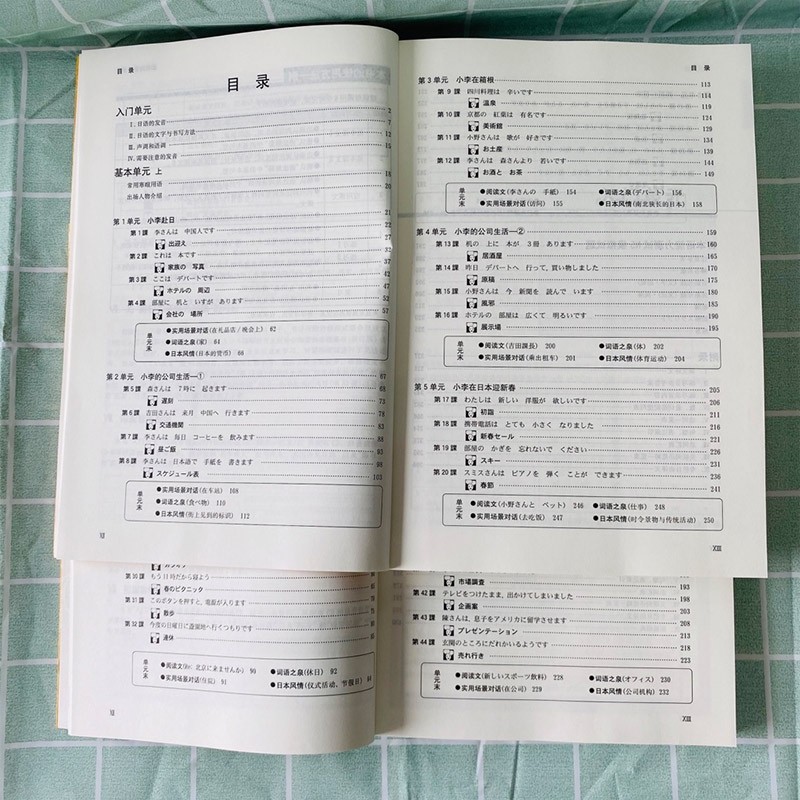 目　录
目　录
入门单元 3
Ⅰ. 日语的发音 7
Ⅱ. 日语的文字与书写方法 12
Ⅲ. 声调和语调 15
Ⅳ. 需要注意的发音
基本单元 上 18
常用寒暄用语 20
出场人物介绍
第1单元　小李赴日 21
第1课　李さんは　中国人です 22
出迎え 27
第2课　これは　本です
家族の　写真 37
第3课　ここは　デパートです 42
ホテルの　周辺 47
第4课　部屋に　机と　いすが　あります 52
会社の　場所 57
单元末
●实用场景对话(在礼品店／晚会上)　62
●词语之泉(家)　64
●日本风情(日本的货币)　66
第2单元　小李的公司生活—① 67
第5课　森さんは　7時に　起きます 68
遅刻 73
第6课　吉田さんは　来月　中国へ　行きます 78
交通機関 83
第7课　李さんは　毎日　コーヒーを　飲みます 88
昼ご飯 93
第8课　李さんは　日本語で　手紙を　書きます 98
スケジュール表 103
单元末
●实用场景对话(在车站)　108
●词语之泉(食べ物)　110
●日本风情(街上见到的标识)　112
XI
目　录
第3单元　小李在箱根 113
第9课　四川料理は　辛いです 114
温泉 119
第10课　京都の　紅葉は　有名です 124
美術館 129
第11课　小野さんは　歌が　好きです 134
お土産 139
第12课　李さんは　森さんより　若いです 144
お酒と　お茶 149
单元末
●阅读文(李さんの　手紙)　154　●词语之泉(デパート)　156
●实用场景对话(访问)　155　●日本风情(南北狭长的日本)　158
第4单元　小李的公司生活—② 159
第13课　机の　上に　本が　3冊　あります 160
居酒屋 165
第14课　昨日　デパートへ　行って，買い物しました 170
原稿 175
第15课　小野さんは　今　新聞を　読んで　います 180
風邪 185
第16课　ホテルの　部屋は　広くて　明るいです 190
展示場 195
单元末
●阅读文(吉田課長)　200　●词语之泉(体)　202
●实用场景对话(乘出租车)　201　●日本风情(体育运动)　204
第5单元　小李在日本迎新春 205
第17课　わたしは　新しい　洋服が　欲しいです 206
初詣 211
第18课　携帯電話は　とても　小さく　なりました 216
新春セール 221
第19课　部屋の　かぎを　忘れないで　ください 226
スキー 231
第20课　スミスさんは　ピアノを　弾く　ことが　できます 236
春節 241
单元末
●阅读文(小野さんと　ペット)　246　●词语之泉(仕事)　248
●实用场景对话(去吃饭)　247　●日本风情(时令景物与传统活动)　250
XIII
第30课　もう11時だから寝よう
春のピクニック
第31课　このボタンを押すと，電源が入ります
散歩
第32课　今度の日曜日に遊園地へ行くつもりです
連休
单元末
●阅读文(北京に来ませんか)　90　●词语之泉(休日)　92
●实用场景对话(住院)　91　●日本风情(仪式活动、节假日)　94
XI
市場調査 193
第42课　テレビをつけたまま，出かけてしまいました 198
企画案 203
第43课　陳さんは，息子をアメリカに留学させます 208
プレゼンテーション 213
第44课　玄関のところにだれかいるようです 218
売れ行き 223
单元末
●阅读文(新しいスポーツ飲料)　228　●词语之泉(オフィス)　230
●实用场景对话(在公司)　229　●日本风情(公司机构)　232
XIII